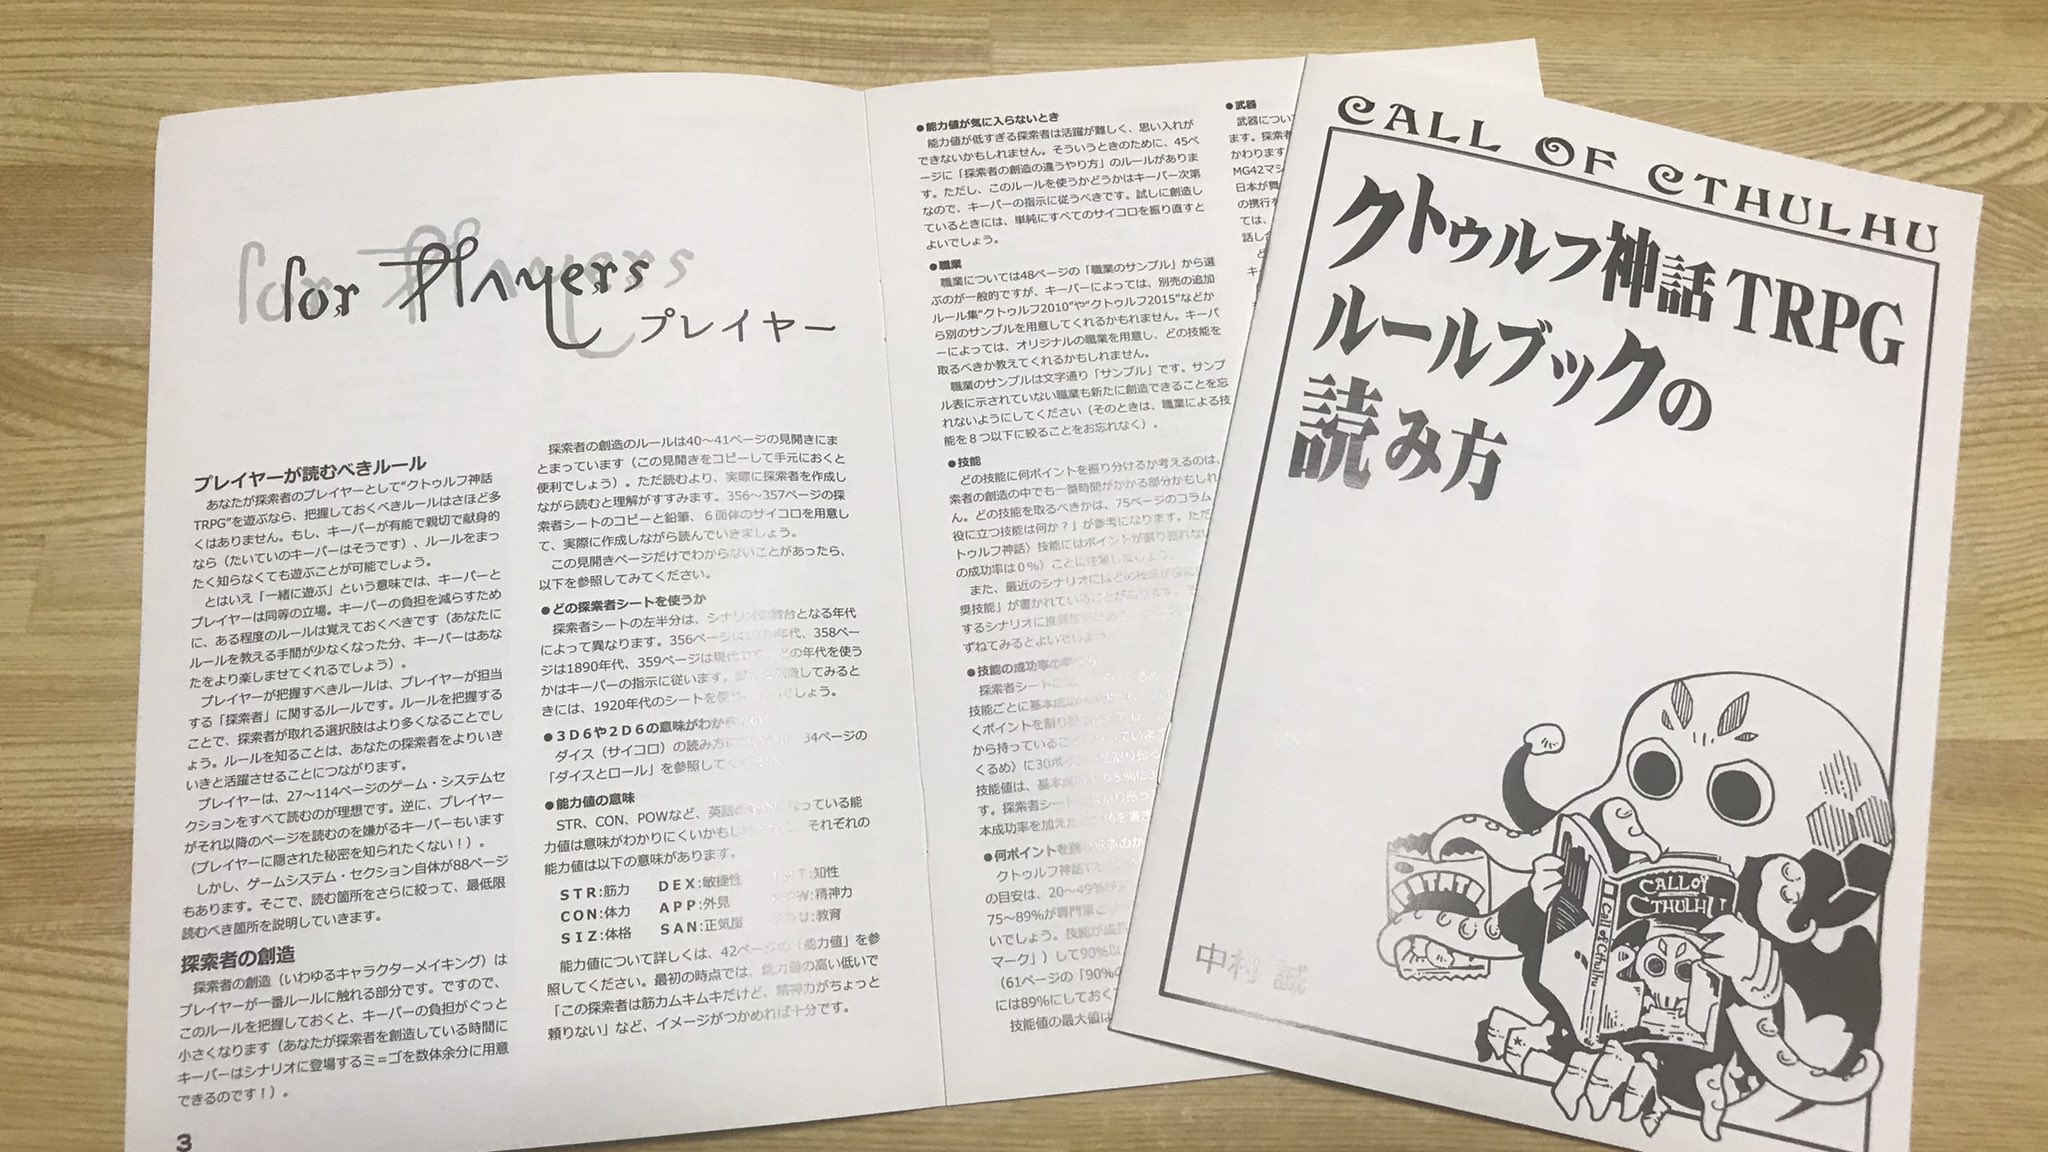 for Players
プレイヤー
プレイヤーが読むべきルール
あなたが探索者のプレイヤーとして“クトゥルフ神話
TRPG”を遊ぶなら、把握しておくべきルールはさほど多
くはありません。もし、キーパーが有能で親切で献身的
なら（たいていのキーパーはそうです）、ルールをまっ
たく知らなくても遊ぶことが可能でしょう。
とはいえ「一緒に遊ぶ」という意味では、キーパーと
プレイヤーは同等の立場。キーパーの負担を減らすため
に、ある程度のルールは覚えておくべきです（あなたに
ルールを教える手間が少なくなった分、キーパーはあな
たをより楽しませてくれるでしょう）。
プレイヤーが把握すべきルールは、プレイヤーが担当
する「探索者」に関するルールです。ルールを把握する
ことで、探索者が取れる選択肢はより多くなることでし
ょう。ルールを知ることは、あなたの探索者をよりいき
いきと活躍させることにつながります。
プレイヤーは、27～114ページのゲーム・システムセ
クションをすべて読むのが理想です。逆に、プレイヤー
がそれ以降のページを読むのを嫌がるキーパーもいます
（プレイヤーに隠された秘密を知られたくない！）。
しかし、ゲームシステム・セクション自体が88ページ
もあります。そこで、読む箇所をさらに絞って、最低限
読むべき箇所を説明していきます。
探索者の創造
探索者の創造（いわゆるキャラクターメイキング）は
プレイヤーが一番ルールに触れる部分です。ですので、
このルールを把握しておくと、キーパーの負担がぐっと
小さくなります（あなたが探索者を創造している時間に
キーパーはシナリオに登場するミ＝ゴを数体余分に用意
できるのです！）。
3
探索者の創造のルールは40～41ページの見開きにま
とまっています（この見開きをコピーして手元におくと
便利でしょう）。ただ読むより、実際に探索者を作成し
ながら読むと理解がすすみます。356～357ページの探
索者シートのコピーと鉛筆、６面体のサイコロを用意し
て、実際に作成しながら読んでいきましょう。
この見開きページだけでわからないことがあったら、
以下を参照してみてください。
●どの探索者シートを使うか
探索者シートの左半分は、シナリオの舞台となる年代
によって異なります。356ページは1920年代、358ペー
ジは1890年代、359ページは現代です。どの年代を使う
かはキーパーの指示に従います。してみると
きには、1920年代のシートを使うしょう。
●３Ｄ６や２Ｄ６の意味がわからない
ダイス（サイコロ）の読み方34ページの
「ダイスとロール」を参照して
●能力値の意味
STR、CON、POWなど、英語っている能
力値は意味がわかりにくいかもしそれぞれの
能力値は以下の意味があります。
ＳＴＲ:筋力 ＤＥＸ:敏捷性 :知性
ＣＯＮ:体力 ＡＰＰ:外見 :精神力
ＳＩＺ:体格 ＳＡＮ:正気度 :教育
能力値について詳しくは、42ページの「能力値」を参
照してください。最初の時点では、能力値の高い低いで
「この探索者は筋力ムキムキだけど、精神力がちょっと
頼りない」など、イメージがつかめれば十分です。
●能力値が気に入らないとき
能力値が低すぎる探索者は活躍が難しく、思い入れが
できないかもしれません。そういうときのために、45ペ
ージに「探索者の創造の違うやり方」のルールがありま
す。ただし、このルールを使うかどうかはキーパー次第
なので、キーパーの指示に従うべきです。試しに創造し
ているときには、単純にすべてのサイコロを振り直すと
よいでしょう。
●職業
職業については48ページの「職業のサンプル」から選
ぶのが一般的ですが、キーパーによっては、別売の追加
ルール集“クトゥルフ2010”や“クトゥルフ2015”などか
ら別のサンプルを用意してくれるかもれません。キーパ
ーによっては、オリジナルの職業を用意し、どの技能を
取るべきか教えてくれるかもしれません。
職業のサンプルは文字通り「サンプル」です。サンプ
ル表に示されていない職業も新たに創造できることを忘
れないようにしてください（そのときは、職業による技
能を８つ以下に絞ることをお忘れなく）。
●技能
どの技能に何ポイントを振り分けるか考えるのは、
索者の創造の中でも一番時間がかかる部分かもしれ
ん。どの技能を取るべきかは、75ページのコラム
役に立つ技能は何か？」が参考になります。ただ
トゥルフ神話〉技能にはポイントが割り振れない
の成功率は０％）ことに注意しましょう
また、最近のシナリオには
奨技能」が書かれていることがあります
するシナリオに推奨
ずねてみるとよいでしょう
●技能の成功率の
探索者シートに
技能ごとに基本成功
くポイントを割り
から持っていること
くるめ）に30ポイント
技能値は、基本成５％に3
す。探索者シートり振っ
本成功率を加えた％を書き
●何ポイントを
クトゥルフ神話T
の目安は、20～49％が
75～89％が専門家と
いでしょう。技能が成長
マーク」）して90％以
（61ページの「90％の
には89％にしておく
技能値の最大値は
●武器
武器につい
ます。探索者
かわります
MG42マシ
日本が舞
の携行
ては、
話し合
ど
キ
CALL OF CTHULHU
クトゥルフ神話TRPG
ルールブックの
読み方
CALL OF
CTHULHU
Call of Cthulhu
中村 誠